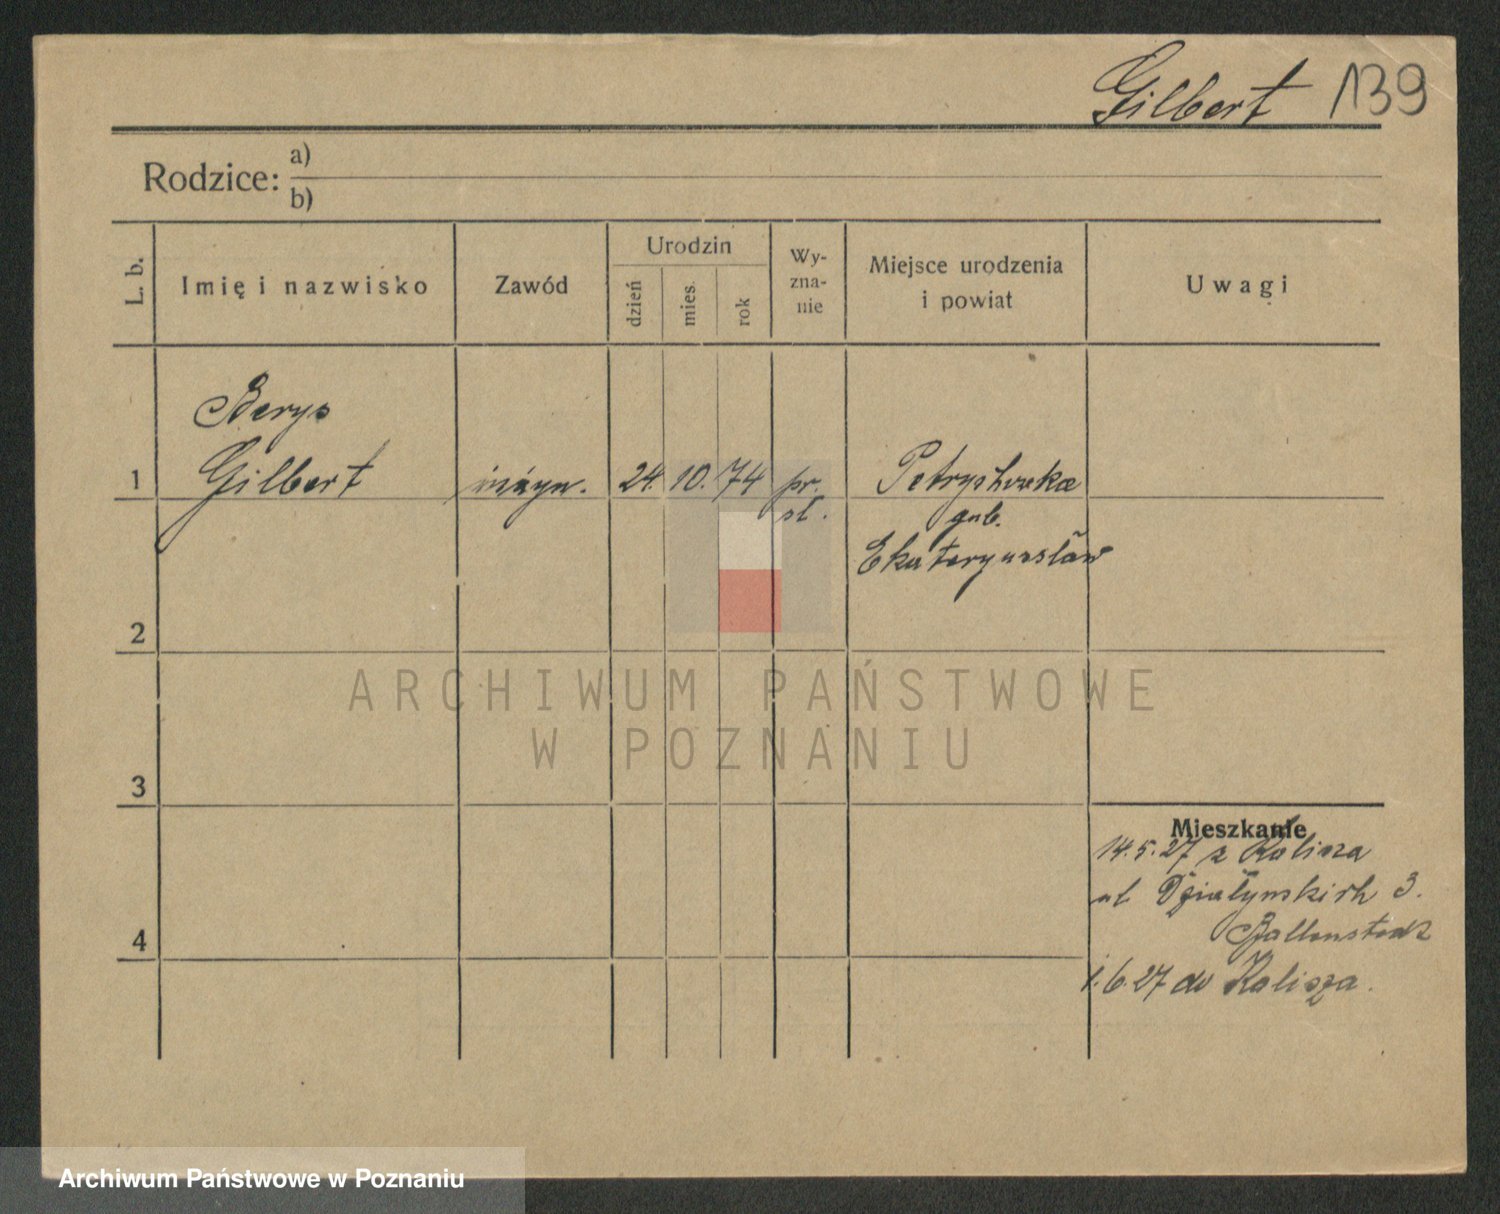 Gilbert 139
Rodzice: a)
b)
L. b.
Imię i nazwisko
Zawód
Urodzin
dzień
mies.
rok
Wy-
zna-
nie
Miejsce urodzenia
i powiat
Uwagi
Borys
1 Gilbert inżyn. 24. 10. 74 pr.
sł.
gub.
Ekaterynosław
2
3
4
Mieszkanie
14.5.27 z Kalisza
ul Działyńskich 3.
Ballenstedt
1.6.27 do Kalisza.
ARCHIWUM PAŃSTWOWE
W POZNANIU
Archiwum Państwowe w Poznaniu